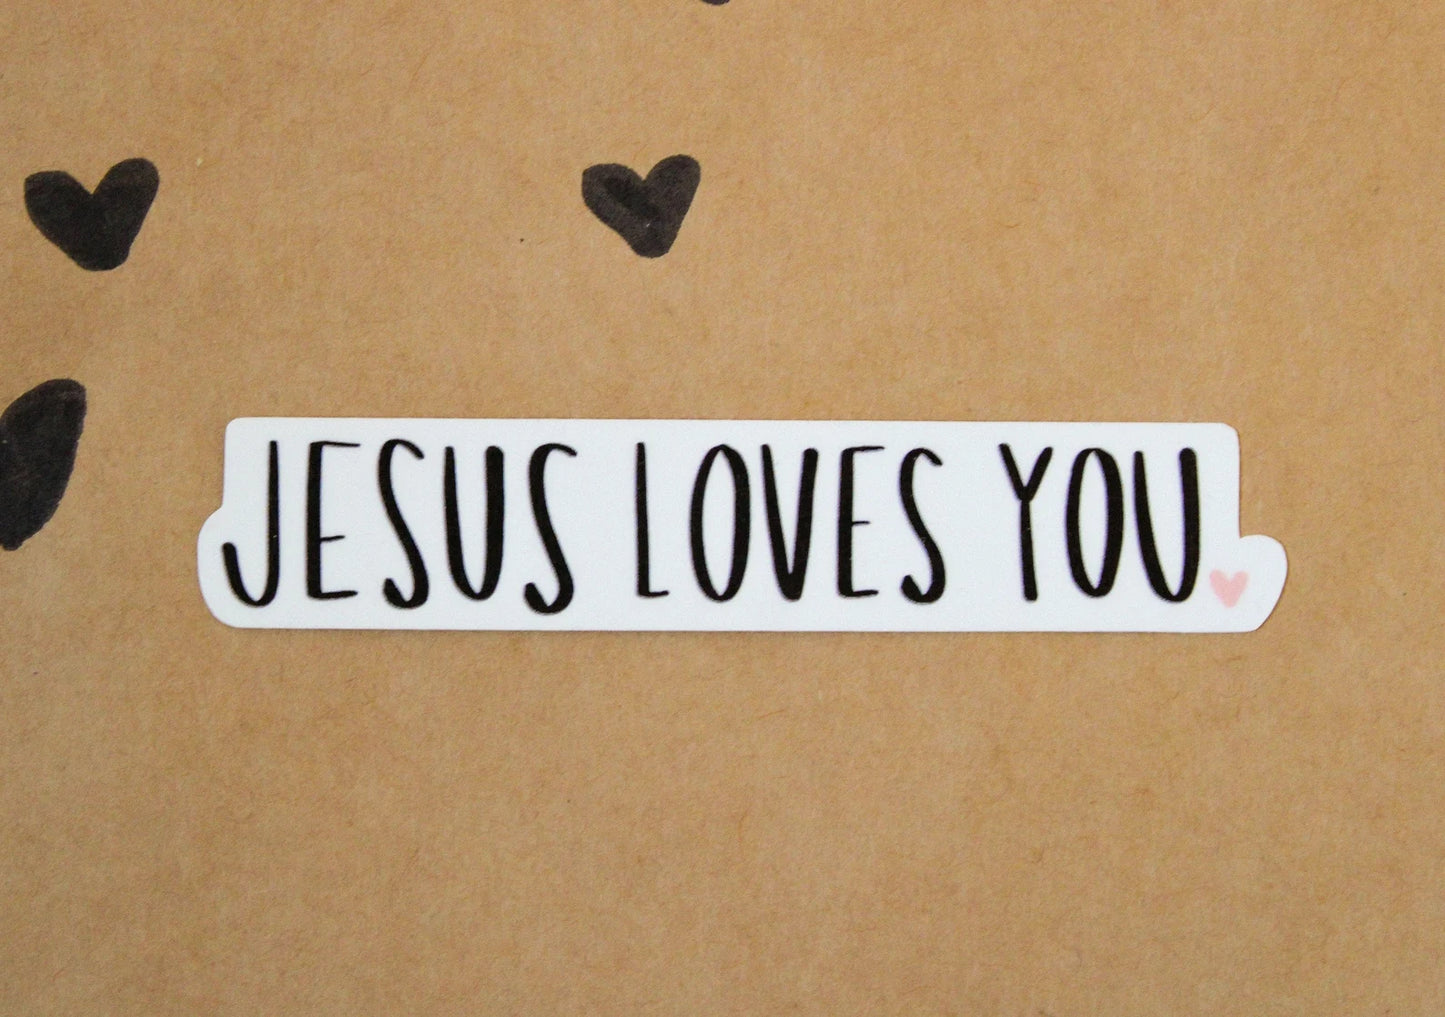 JESUS LOVES YOU